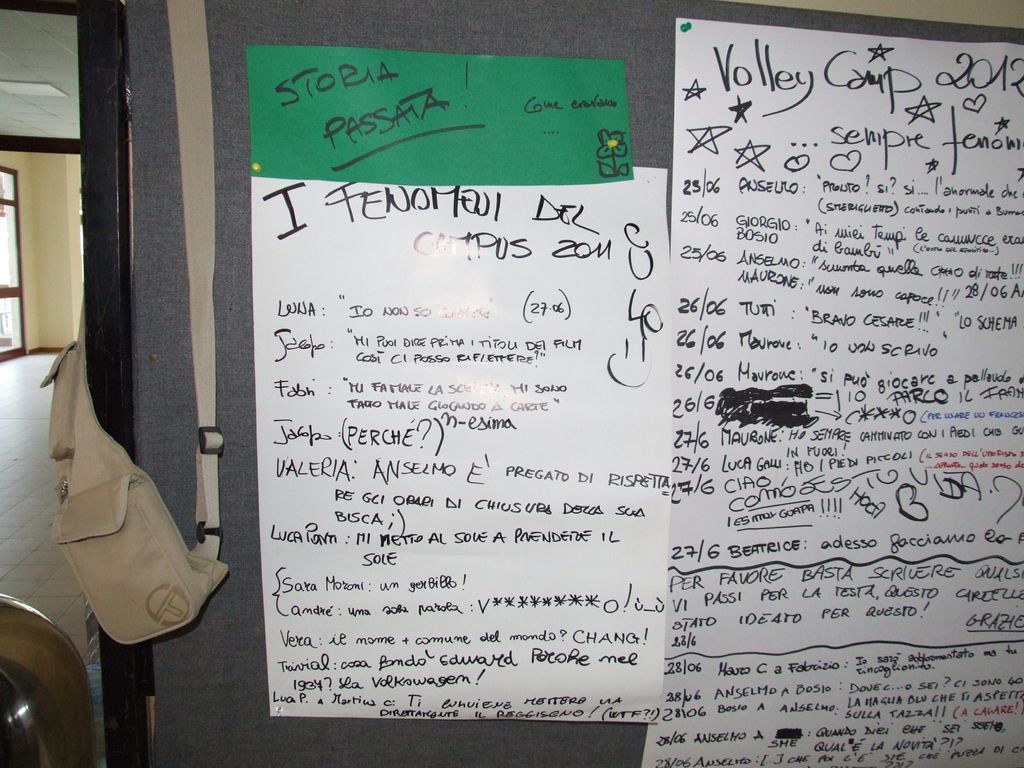 STORIA !
PASSATA
Come eravamo
....
I FENOMENI DEL
CAMPUS 2011
LUNA: "IO NON SO (27.06)
Jacopo: "MI PUOI DIRE PRIMA I TITOLI DEI FILM
COSÌ CI POSSO RIFLETTERE?"
Fabri: "MI FA MALE LA MI SONO
FATTO MALE GIOCANDO A CARTE"
Jacopo: (PERCHÉ?) n-esima
VALERIA: ANSELMO E' PREGATO DI RISPETTA
RE GLI ORARI DI CHIUSURA DELLA SUA
BISCA;)
LUCA PONTI: MI METTO AL SOLE A PRENDERE IL
SOLE
Sara Moroni: un gerbillo!
andré: una sola parola: V********O! ù_ù
Vera: il nome + comune del mondo? CHANG!
Trivial: cosa fondò Edward nel
193 ? la Volkswagen!
Luca P. a Martina C: TI CONVIENE METTERE MA
DIRETTAMENTE IL REGGISENO! (WTF?!)
Volley Camp 2012
... sempre fenom
25/06 ANSELMO: "PRONTO? SI? SI... l'anormale che
(SMERIGLIETTO) contando i punti a
25/06 GIORGIO BOSIO: "Ai miei tempi le camicce eran
di bambù"
25/06 ANSELMO: "smonta quella di rete!!!
MAURONE: "non sono capace!!!" 28/06
26/06 TUTTI: "BRAVO CESARE!!!" "LO SCHEMA
26/06 Maurone: "IO NON SCRIVO"
26/06 Maurone: "si può giocare a pallavolo
26/6 = IO PARCO IL
C***O (PER USARE UN FRANCES
27/6 MAURONE: HO SEMPRE CAMMINATO CON I PIEDI CHE GU
IN FUORI!
27/6 LUCA GALLI: HO I PIEDI PICCOLI (IL SENSO DELL'UMORISMO
27/6 CIAO
COMOSES TU
(ESTOY GUAPA)!!!!
27/6 BEATRICE: adesso facciamo la
PER FAVORE BASTA SCRIVERE QUALSI
VI PASSI PER LA TESTA, QUESTO CARTELLO
STATO IDEATO PER QUESTO!
GRAZIE
28/6
28/06 Mauro C a Fabrizio: Io sarò addormentato ma tu
rincoglionito.
28/06 ANSELMO A BOSIO: DOVE C...O SEI? CI SONO
28/06 BOSIO A ANSELMO: LA MAGLIA BLU CHE TI ASPETTA
SULLA TAZZA!! (A CAGARE!)
28/06 ANSELMO A SME: QUANDO DICI CHE SEI
QUAL'È LA NOVITÀ?!?
28/06 ANSELMO: [..] CHE POI C'È CHE PUZZA DI